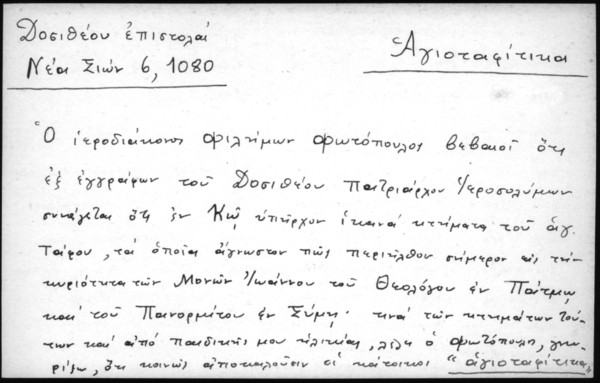 Δοσιθέου ἐπιστολαί
Νέα Σιών 6, 1080
Ἁγιοταφίτικα
Ὁ ἱεροδιάκονος Φιλήμων Φωτόπουλος βεβαιοῖ ὅτι
ἐξ ἐγγράφων τοῦ Δοσιθέου Πατριάρχου Ἱεροσολύμων
συνάγεται ὅτι ἐν Κῷ ὑπῆρχον ἱκανά κτήματα τοῦ ἁγ.
Τάφου, τά ὁποῖα ἄγνωστον πῶς περιῆλθον σήμερον εἰς τήν
κυριότητα τῶν Μονῶν Ἰωάννου τοῦ Θεολόγου ἐν Πάτμῳ
καί τοῦ Πανορμίτου ἐν Σύμῃ· τινά τῶν κτημάτων τού-
των καί ἀπό παιδικῆς μου ἡλικίας, λέγει ὁ Φωτόπουλ., γνω-
ρίζω, ὅτι κοινῶς ἀποκαλοῦσιν οἱ κάτοικοι "ἁγιοταφίτικα"